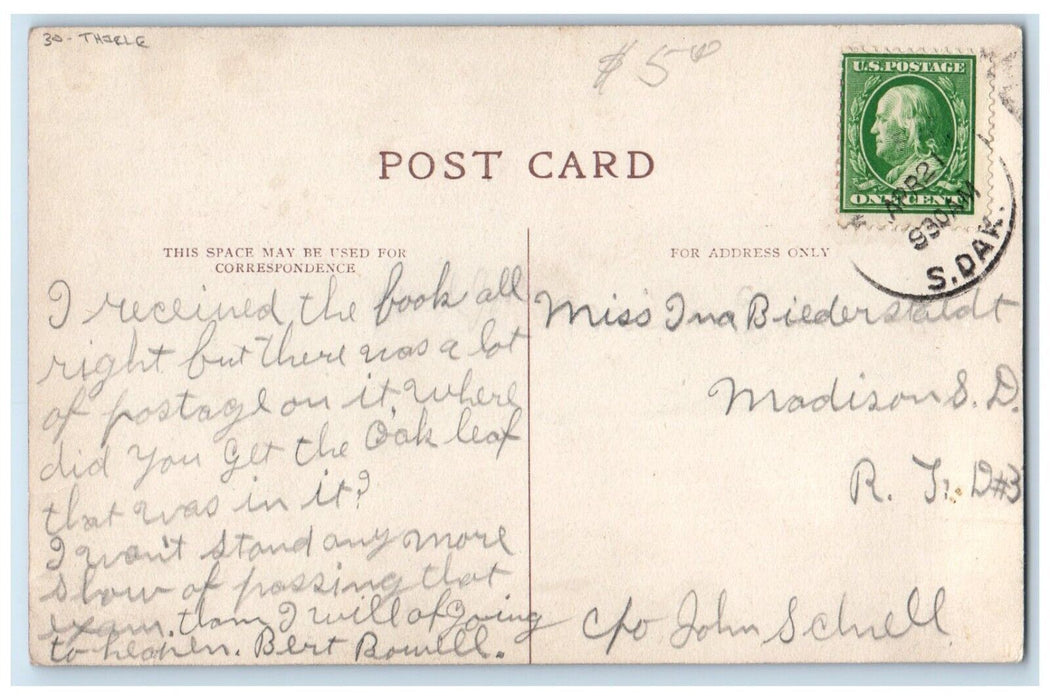 30 - THIELE
$5⁰⁰
POST CARD
U.S. POSTAGE
ONE CENT
APR 21
930 AM
S. DAK.
THIS SPACE MAY BE USED FOR
CORRESPONDENCE
FOR ADDRESS ONLY
I received the book all
right but there was a lot
of postage on it, where
did you get the Oak leaf
that was in it?
I wan't stand any more
show of passing that
exam. than I will of going
to heaven. Bert Rowell.
Miss Ina Biederstaedt
Madison S. D.
R. F. D #3
c/o John Schnell